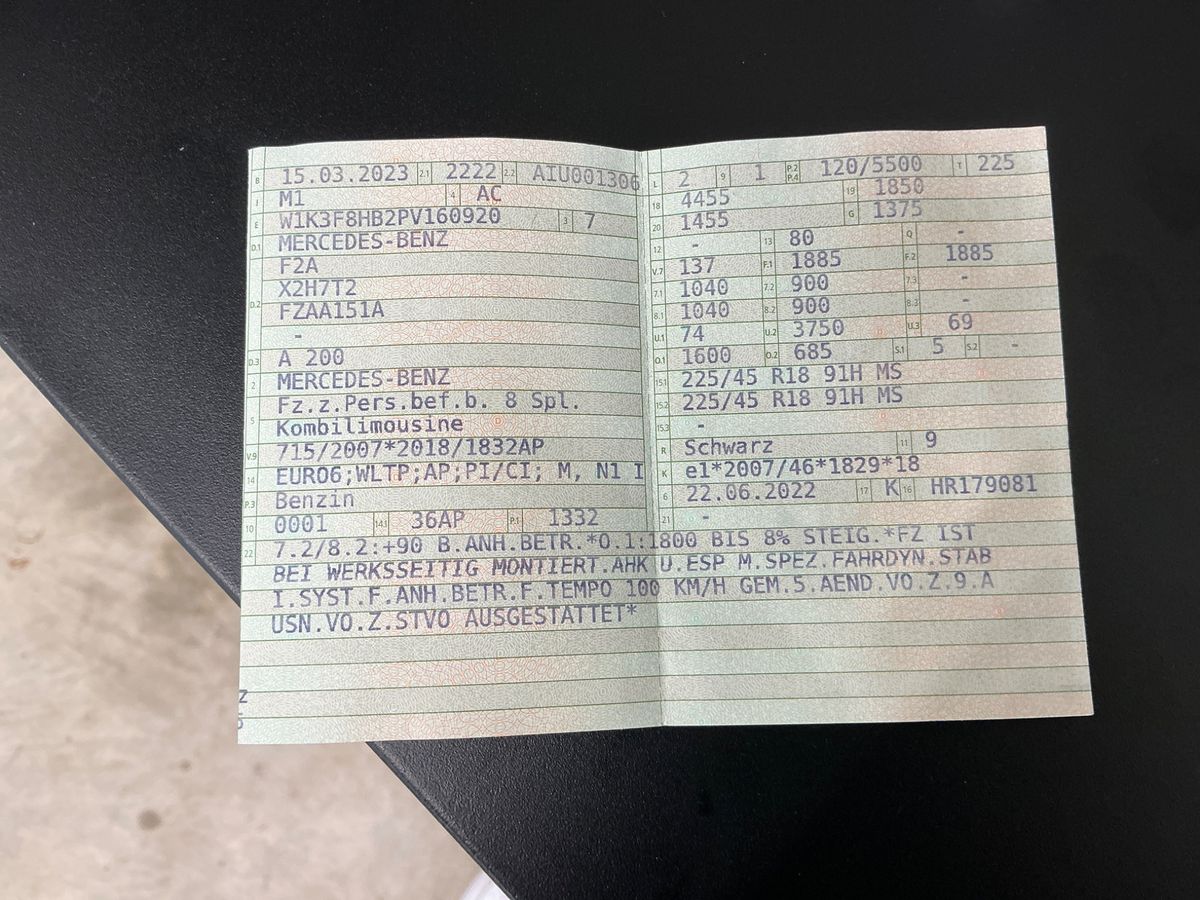 B 15.03.2023 2.1 2222 2.2 AIU001306
J M1 4 AC
E W1K3F8HB2PV160920 / 3 7
D.1 MERCEDES-BENZ
F2A
D.2 X2H7T2
FZAA151A
-
D.3 A 200
2 MERCEDES-BENZ
5 Fz.z.Pers.bef.b. 8 Spl.
Kombilimousine
V.9 715/2007*2018/1832AP
14 EURO6;WLTP;AP;PI/CI; M, N1 I
P.3 Benzin
10 0001 14.1 36AP P.1 1332
L 2 9 1 P.2 P.4 120/5500 T 225
18 4455 19 1850
20 1455 G 1375
12 - 13 80 Q -
V.7 137 F.1 1885 F.2 1885
7.1 1040 7.2 900 7.3 -
8.1 1040 8.2 900 8.3 -
U.1 74 U.2 3750 U.3 69
O.1 1600 O.2 685 S.1 5 S.2 -
15.1 225/45 R18 91H MS
15.2 225/45 R18 91H MS
15.3 -
R Schwarz 11 9
K e1*2007/46*1829*18
6 22.06.2022 17 K 16 HR179081
21 -
22 7.2/8.2:+90 B.ANH.BETR.*O.1:1800 BIS 8% STEIG.*FZ IST
BEI WERKSSEITIG MONTIERT.AHK U.ESP M.SPEZ.FAHRDYN.STAB
I.SYST.F.ANH.BETR.F.TEMPO 100 KM/H GEM.5.AEND.VO.Z.9.A
USN.VO.Z.STVO AUSGESTATTET*
Z